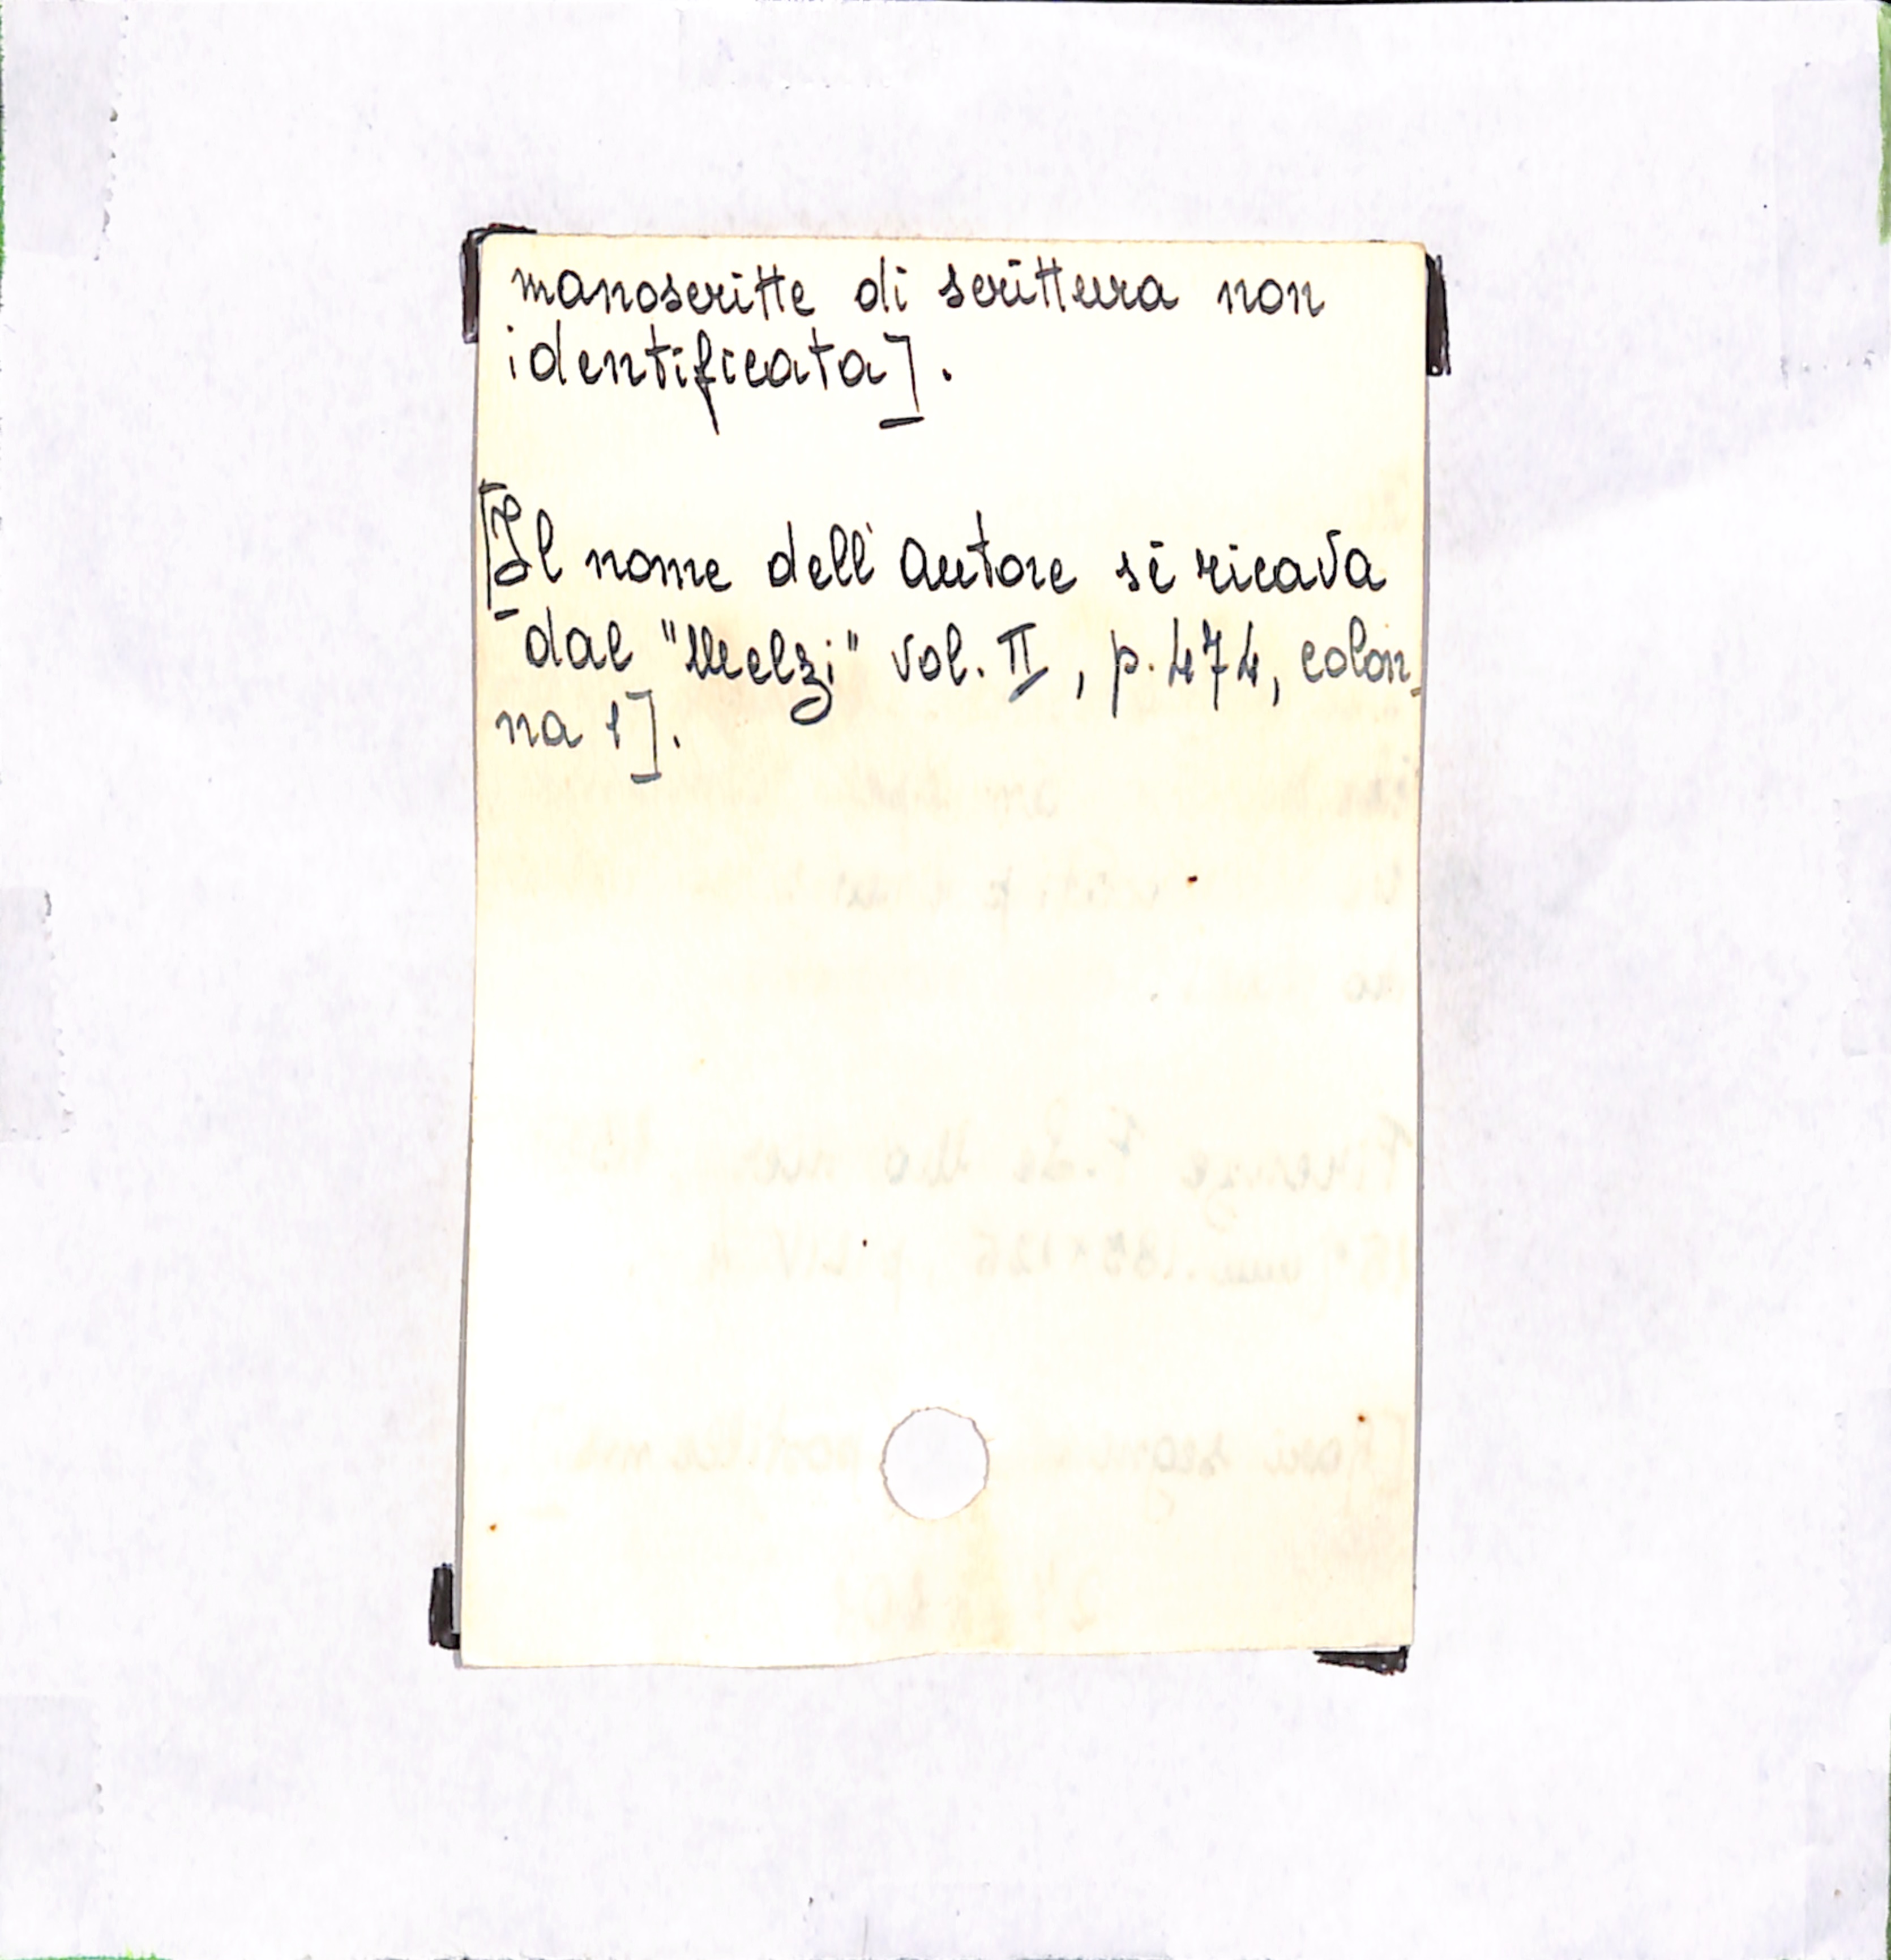 manoscritte di scrittura non
identificata].
[Il nome dell'autore si ricava
dal "Melzi" vol. II, p. 474, colon-
na 1].